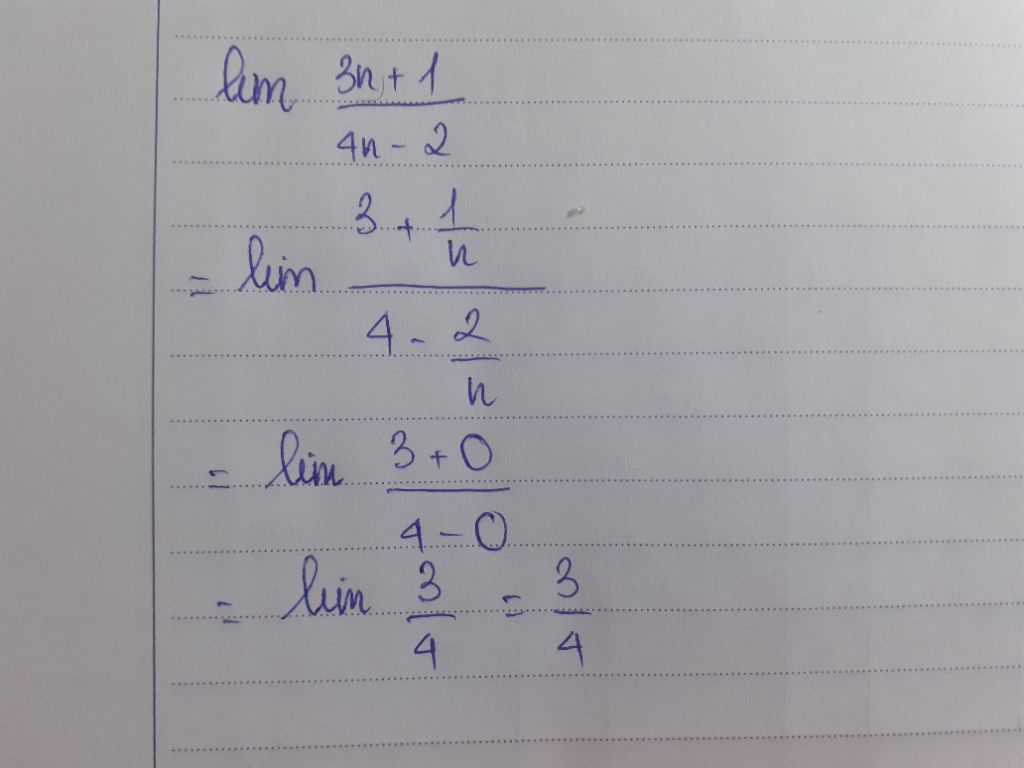 lim (3n + 1)/(4n - 2)
= lim (3 + 1/n)/(4 - 2/n)
= lim (3 + 0)/(4 - 0)
= lim 3/4 = 3/4